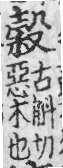 榖
古斛切
惡木也